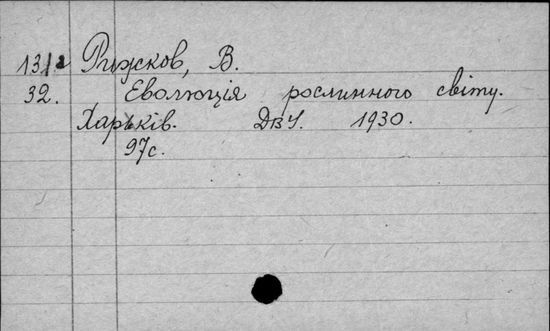 13/2 Рижков, В.
32. Еволюція рослинного світу.
Харьків. ДВУ. 1930.
97с.